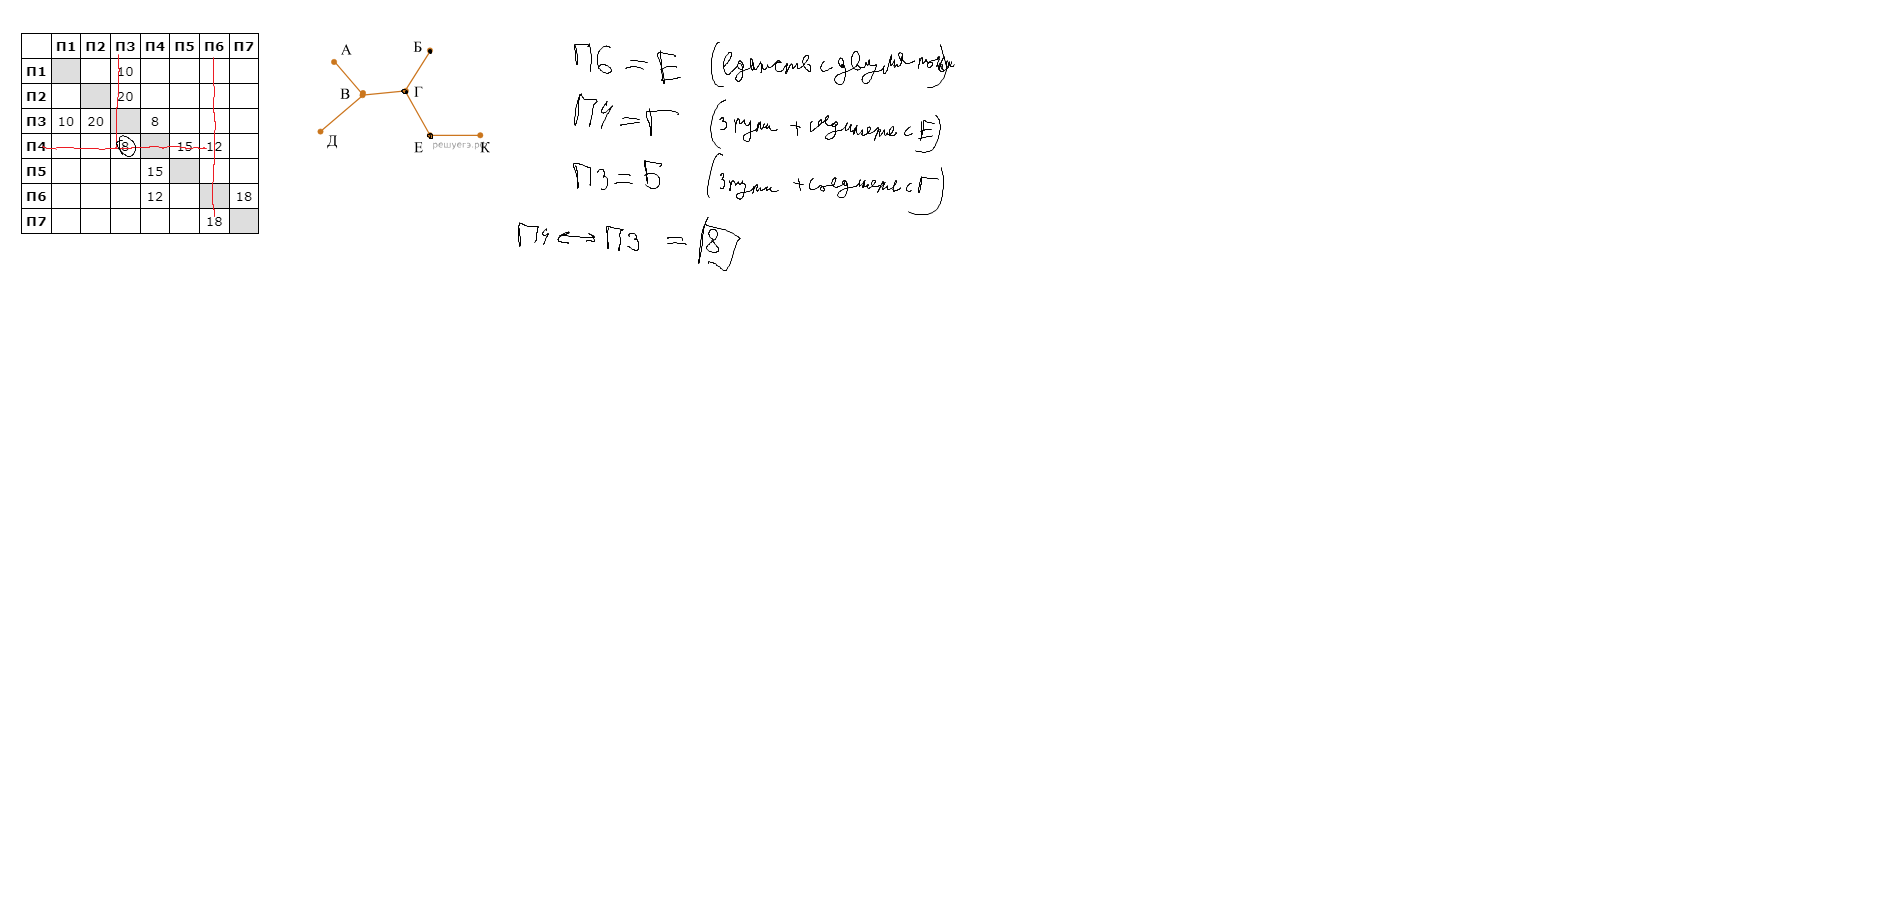 П1 П2 П3 П4 П5 П6 П7
П1 10
П2 20
П3 10 20 8
П4 8 15 12
П5 15
П6 12 18
П7 18
А
Б
В
Г
Д
Е
К
решуегэ.рф
П6 = Е (единств с двумя
П4 = Г (3 пути + соединение с Е)
П3 = Б (3 пути + соединение с Г)
П4 ↔ П3 = 8